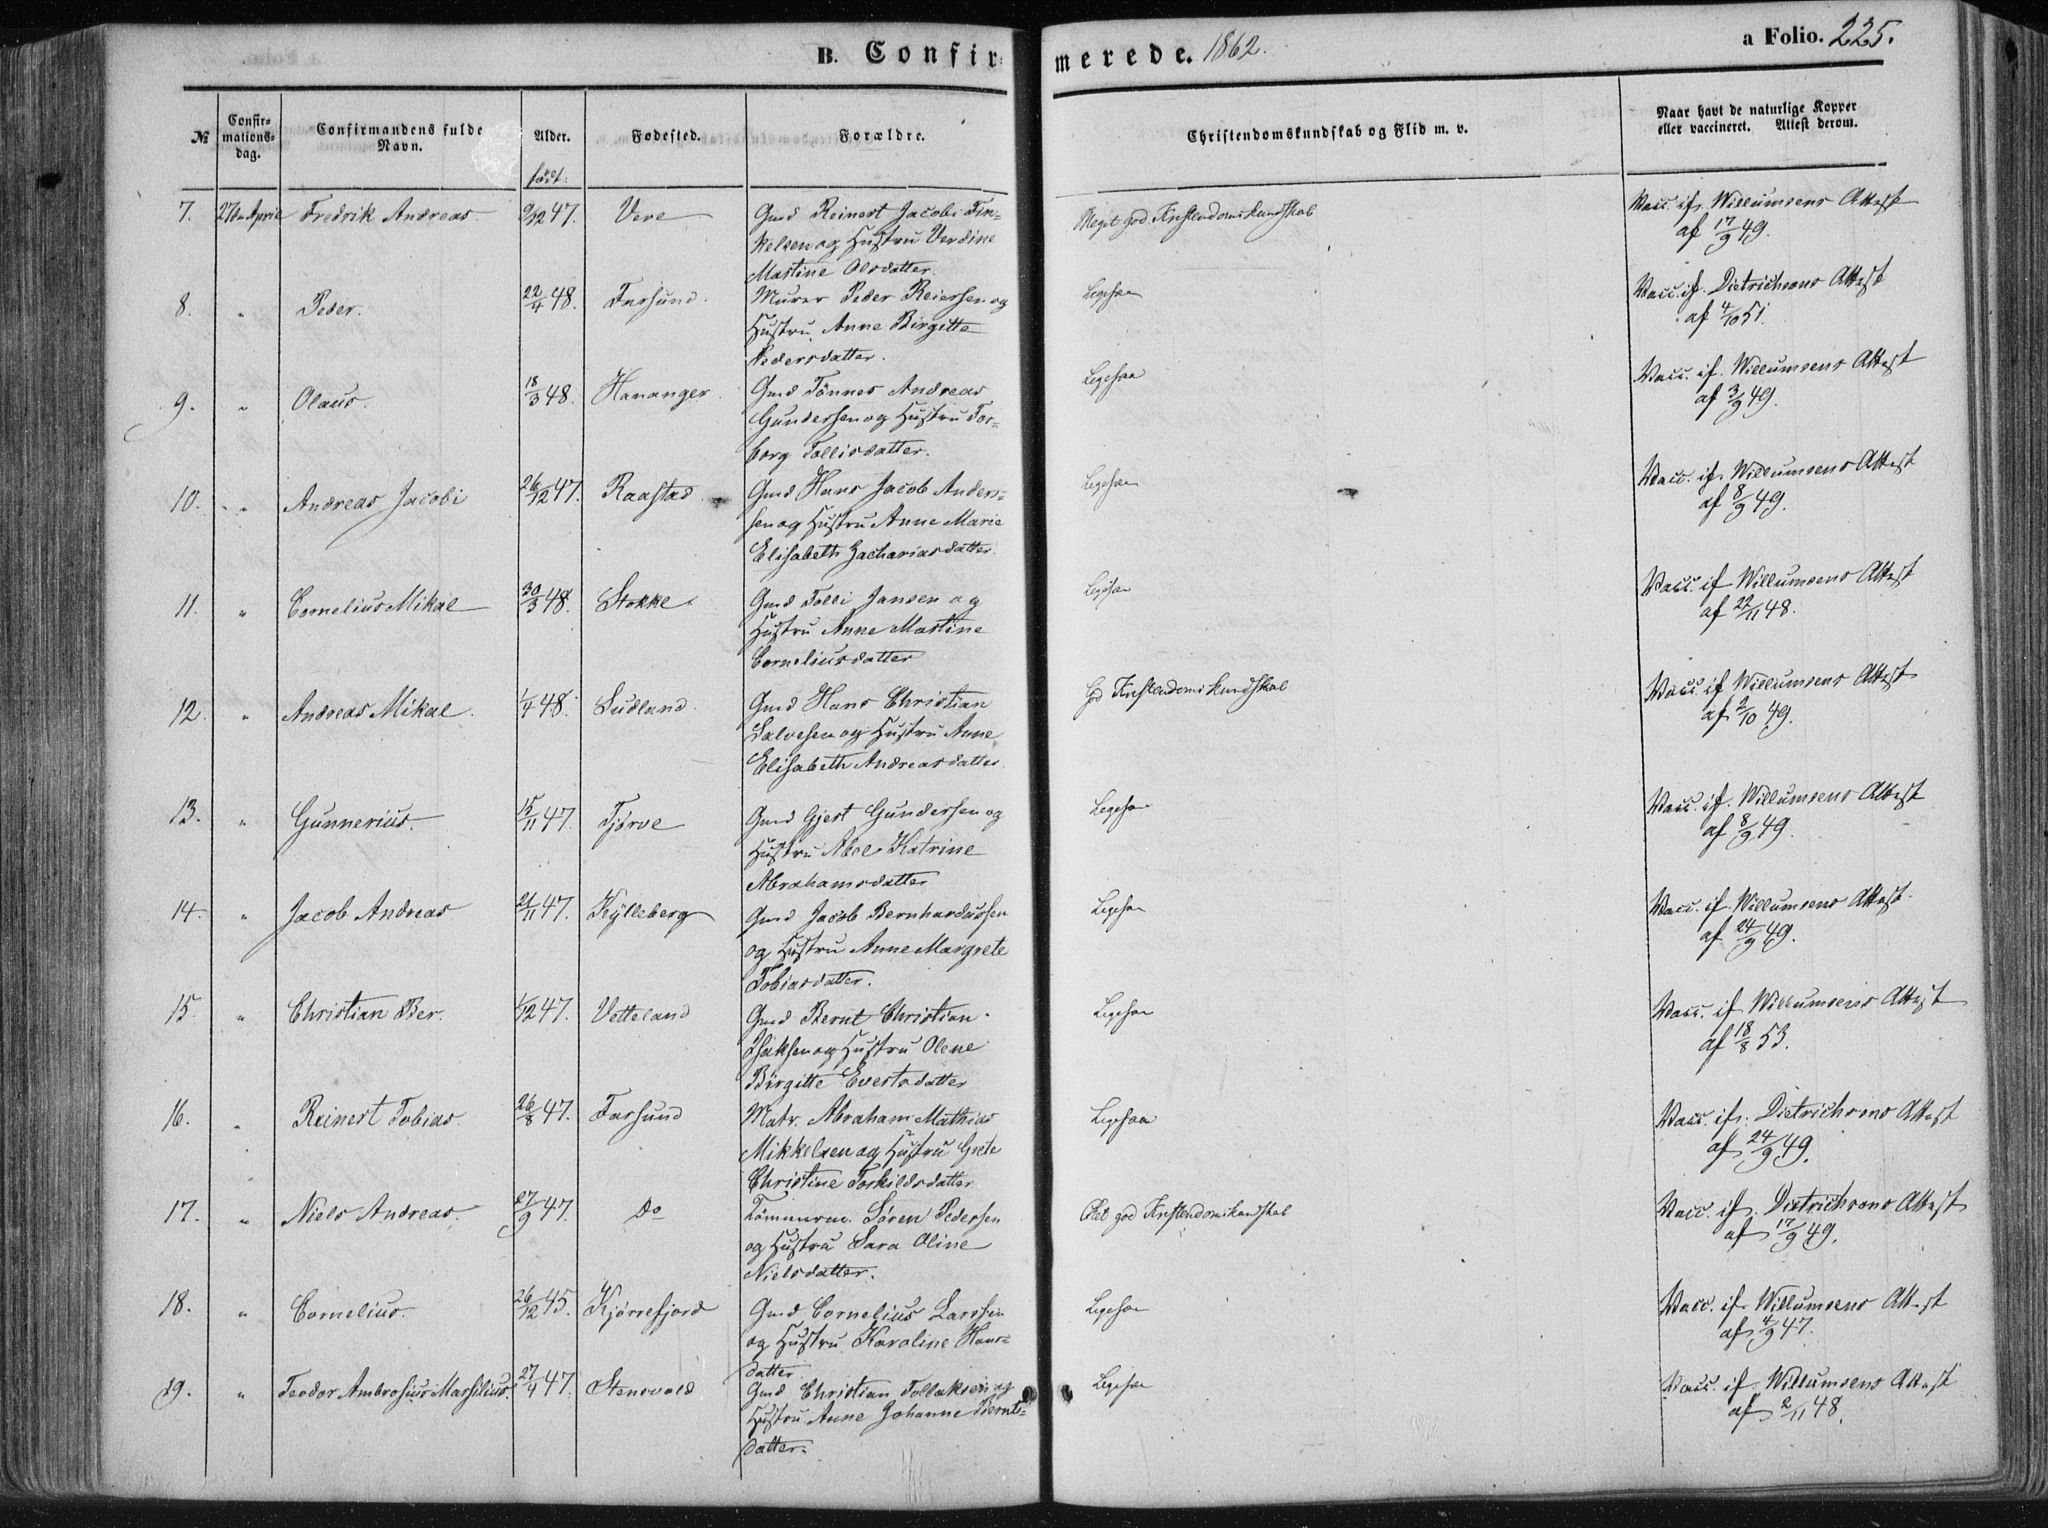 B. Confirmerede. 1862.
a Folio. 225.
№
Confirmationsdag.
Confirmandens fulde Navn.
Alder.
født:
Fødested.
Forældre.
Christendomskundskab og Flid m. v.
Naar havt de naturlige Kopper eller vaccineret. Attest derom.
7. 27de April Fredrik Andreas. 9/12 47. Vere Gmd Reinert Jacobi Fin- Meget god Kristendomskundskab Vacc. if. Willumsens Attest
kelsen og Hustru Verdine af 17/9 49.
Martine Olsdatter.
8. " Peder. 22/4 48. Farsund. Murer Peder Reiersen og Ligesaa Vacc. if. Dietrichsons Attest
Hustru Anne Birgitte af 4/10 51.
Pedersdatter.
9. " Olaus. 18/3 48. Hananger. Gmd Tönnes Andreas Ligesaa Vacc. if. Willumsens Attest
Gundersen og Hustru Tor- af 3/9 49.
borg Tollisdatter.
10. " Andreas Jacobi 26/12 47. Raastad. Gmd Hans Jacob Anders- Ligesaa Vacc. if. Willumsens Attest
sen og Hustru Anne Marie af 8/9 49.
Elisabeth Zachariasdatter.
11. " Cornelius Mikal 30/3 48. Stokke. Gmd Tolli Jansen og Ligesaa Vacc. if Willumsens Attest
Hustru Anne Martine af 22/11 48.
Corneliusdatter
12. " Andreas Mikal. 1/4 48. Sudland. Gmd Hans Christian God Kristendomskundskab Vacc. if Willumsens Attest
Salvesen og Hustru Anne af 2/10 49.
Elisabeth Andreasdatter.
13. " Gunnerius. 15/11 47. Tjørve Gmd Gjert Gundersen og Ligesaa Vacc. if. Willumsens Attest
Hustru Abel Katrine af 8/9 49.
Abrahamsdatter
14. " Jacob Andreas 21/11 47. Kylleberg Gmd Jacob Bernhardussen Ligesaa Vacc. if. Willumsens Attest.
og Hustru Anne Margrete af 24/9 49.
Tobiasdatter.
15. " Christian Ber. 1/12 47. Vetteland Gmd Bernt Christian Ligesaa Vacc. if Willumsens Attest
Isaksen og Hustru Olene af 18/8 53.
Birgitte Evertsdatter
16. " Reinert Tobias. 26/8 47. Farsund Matr. Abraham Mathias Ligesaa Vacc. if. Dietrichsons Attest
Mikkelsen og Hustru Grete af 24/9 49.
Christine Torkildsdatter
17. " Niels Andreas. 27/9 47. Do Tömmerm. Sören Pedersen god Kristendomskundskab Vacc. if. Dietrichsons Attest
og Hustru Sara Oline af 17/9 49.
Nielsdatter.
18. " Cornelius. 26/12 45. Kjørrefjord Gmd Cornelius Larssen Ligesaa Vacc. if. Willumsens Attest
og Hustru Karoline Hans- af 4/9 47.
datter
19. " Teodor Ambrosius Marsilius. 27/4 47. Stensvold Gmd Christian Tollaksen og Ligesaa Vacc. if Willumsens Attest
Hustru Anne Johanne Bernts- af 2/11 48.
datter.